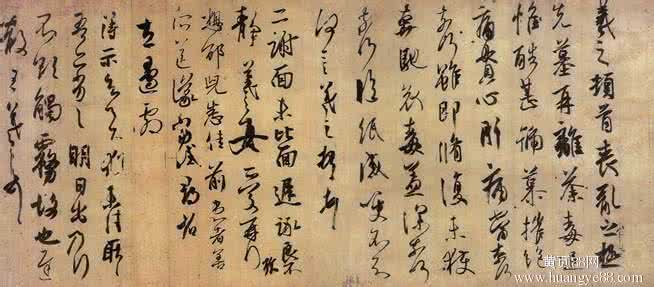 羲之頓首喪亂之極
先墓再離荼毒追
惟酷甚號慕摧絕
痛貫心肝痛當奈何
奈何雖即脩復未獲
奔馳哀毒益深奈何
奈何臨紙感哽不知
何言羲之頓首頓首
二謝面未比面遲詠良不
靜羲之女愛再拜
想邵兒悉佳前患者善
所送議當試尋省
左邊劇
得示知足下猶未佳耿
耿吾亦劣劣明日出乃行
不欲觸霧故也遲
散王羲之頓首
黄页88网
www.huangye88.com